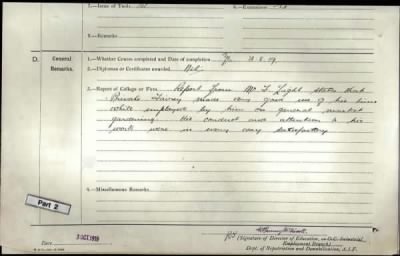 1.—Issue of Tools.
2.—Remarks
D.
General Remarks.
1.—Whether Course completed and Date of completion.
2.—Diplomas or Certificates awarded. Nil
3.—Report of College or Firm. Report from Mr. T. Light states that
Private made very good use of his time
while employed by him in general market
gardening. His conduct and attention to his
work were in every way satisfactory
4.—Miscellaneous Remarks.
Part 2
Date 3 OCT 1919
(Signature of Director of Education, or O.C. Industrial
Employment Branch)
Dept. of Repatriation and Demobilization, A.I.F.